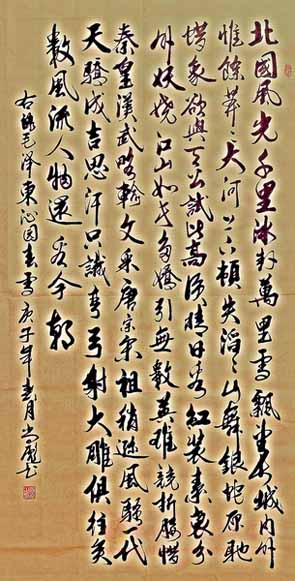 北國風光千里冰封萬里雪飄望長城内外
惟餘莽〻大河上下頓失滔〻山舞銀蛇原馳
蜡象欲與天公試比高須晴日看紅裝素裹分
外妖嬈江山如此多嬌引無數英雄競折腰惜
秦皇漢武略輸文采唐宗宋祖稍遜風騷一代
天驕成吉思汗只識彎弓射大雕俱往矣
數風流人物還看今朝
右錄毛澤東沁園春雪庚子年春月